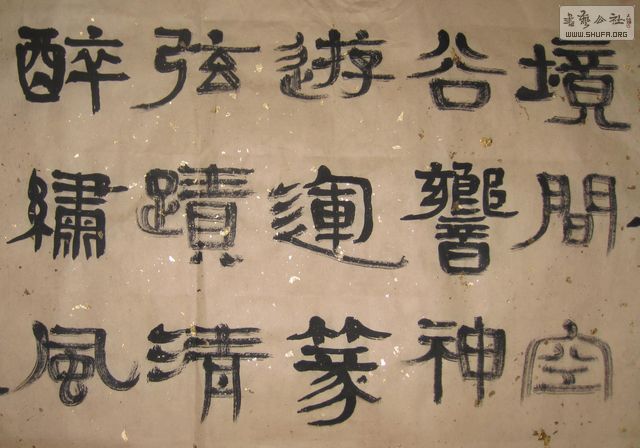 境間空
谷響神
遊運篆
弦蹟清
醉繡風
書藝公社
WWW.SHUFA.ORG